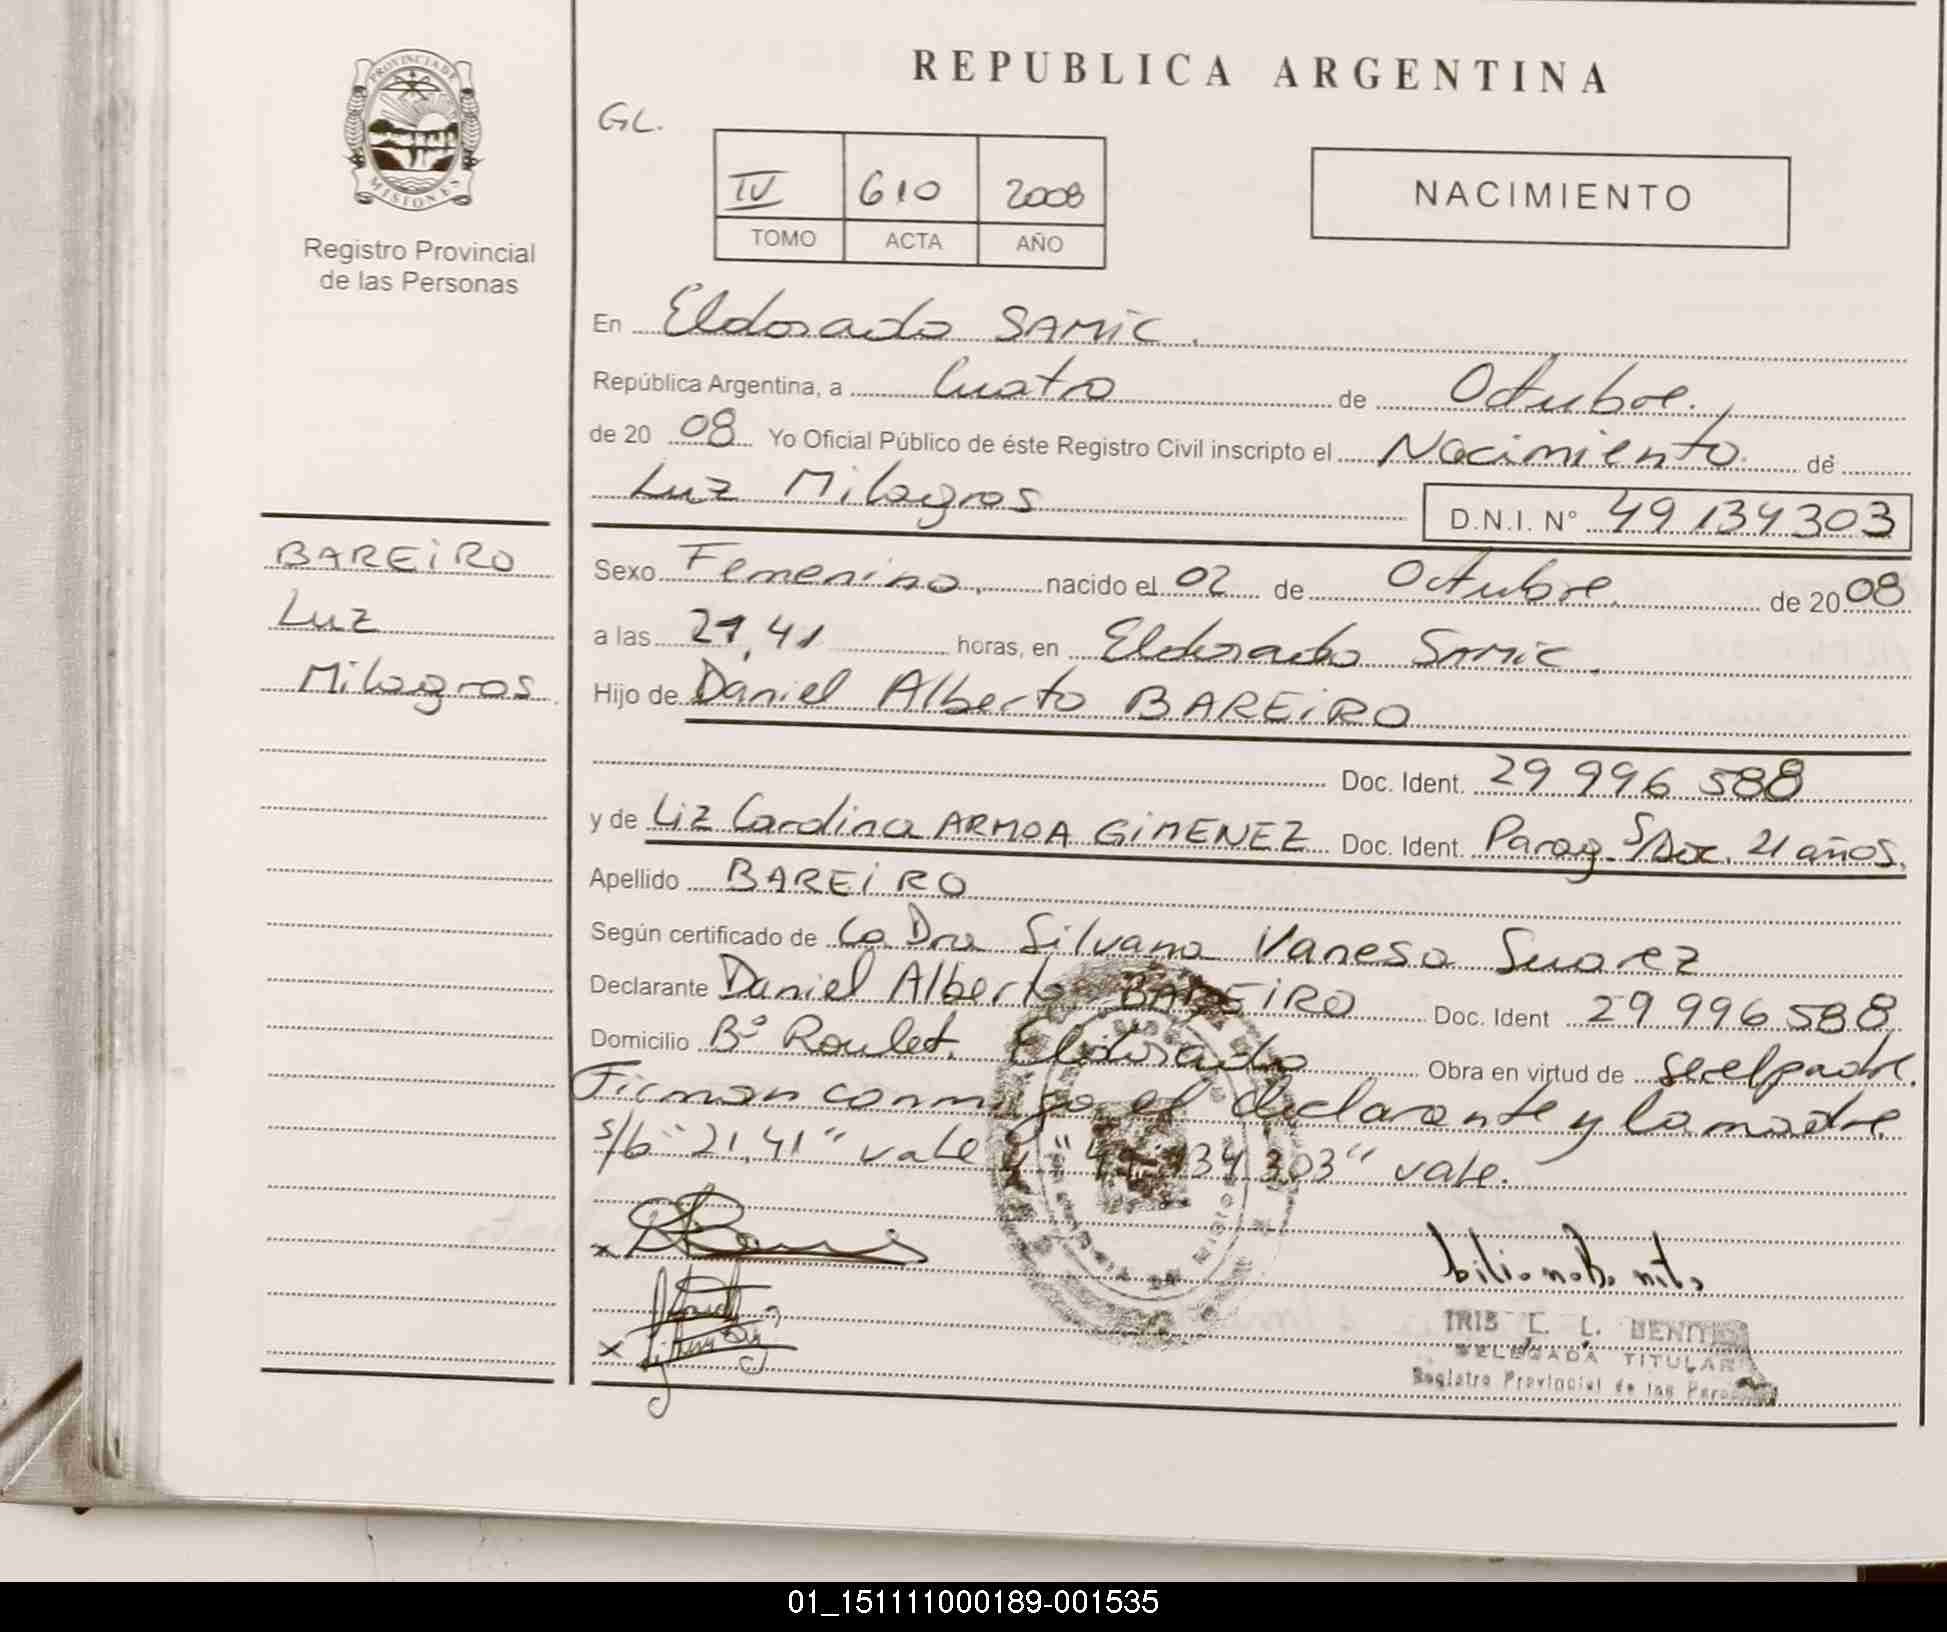 REPUBLICA ARGENTINA
PROVINCIA DE
MISIONES
Registro Provincial
de las Personas
GL.
IV 610 2008
TOMO ACTA AÑO
NACIMIENTO
En Eldorado SAMIC.
República Argentina, a Cuatro de Octubre.
de 2008 Yo Oficial Público de éste Registro Civil inscripto el Nacimiento de
Luz Milagros D.N.I. N° 49 134 303
BAREIRO
Luz
Milagros.
Sexo Femenino. nacido el 02 de Octubre. de 2008
a las 21,41 horas, en Eldorado SAMIC.
Hijo de Daniel Alberto BAREIRO
Doc. Ident. 29 996 588
y de Liz Carolina ARMOA GIMENEZ Doc. Ident. Parag. S/Doc. 21 años.
Apellido BAREIRO
Según certificado de La Dra Silvana Vanesa Suarez
Declarante Daniel Alberto BAREIRO Doc. Ident 29 996 588
Domicilio B° Roulet. Eldorado Obra en virtud de ser el padre.
Firman conmigo el declarante y la madre
s/b "21,41" vale y "49 134 303" vale.
x
x
IRIS L. L. BENITEZ
DELEGADA TITULAR
Registro Provincial de las Personas
01_151111000189-001535